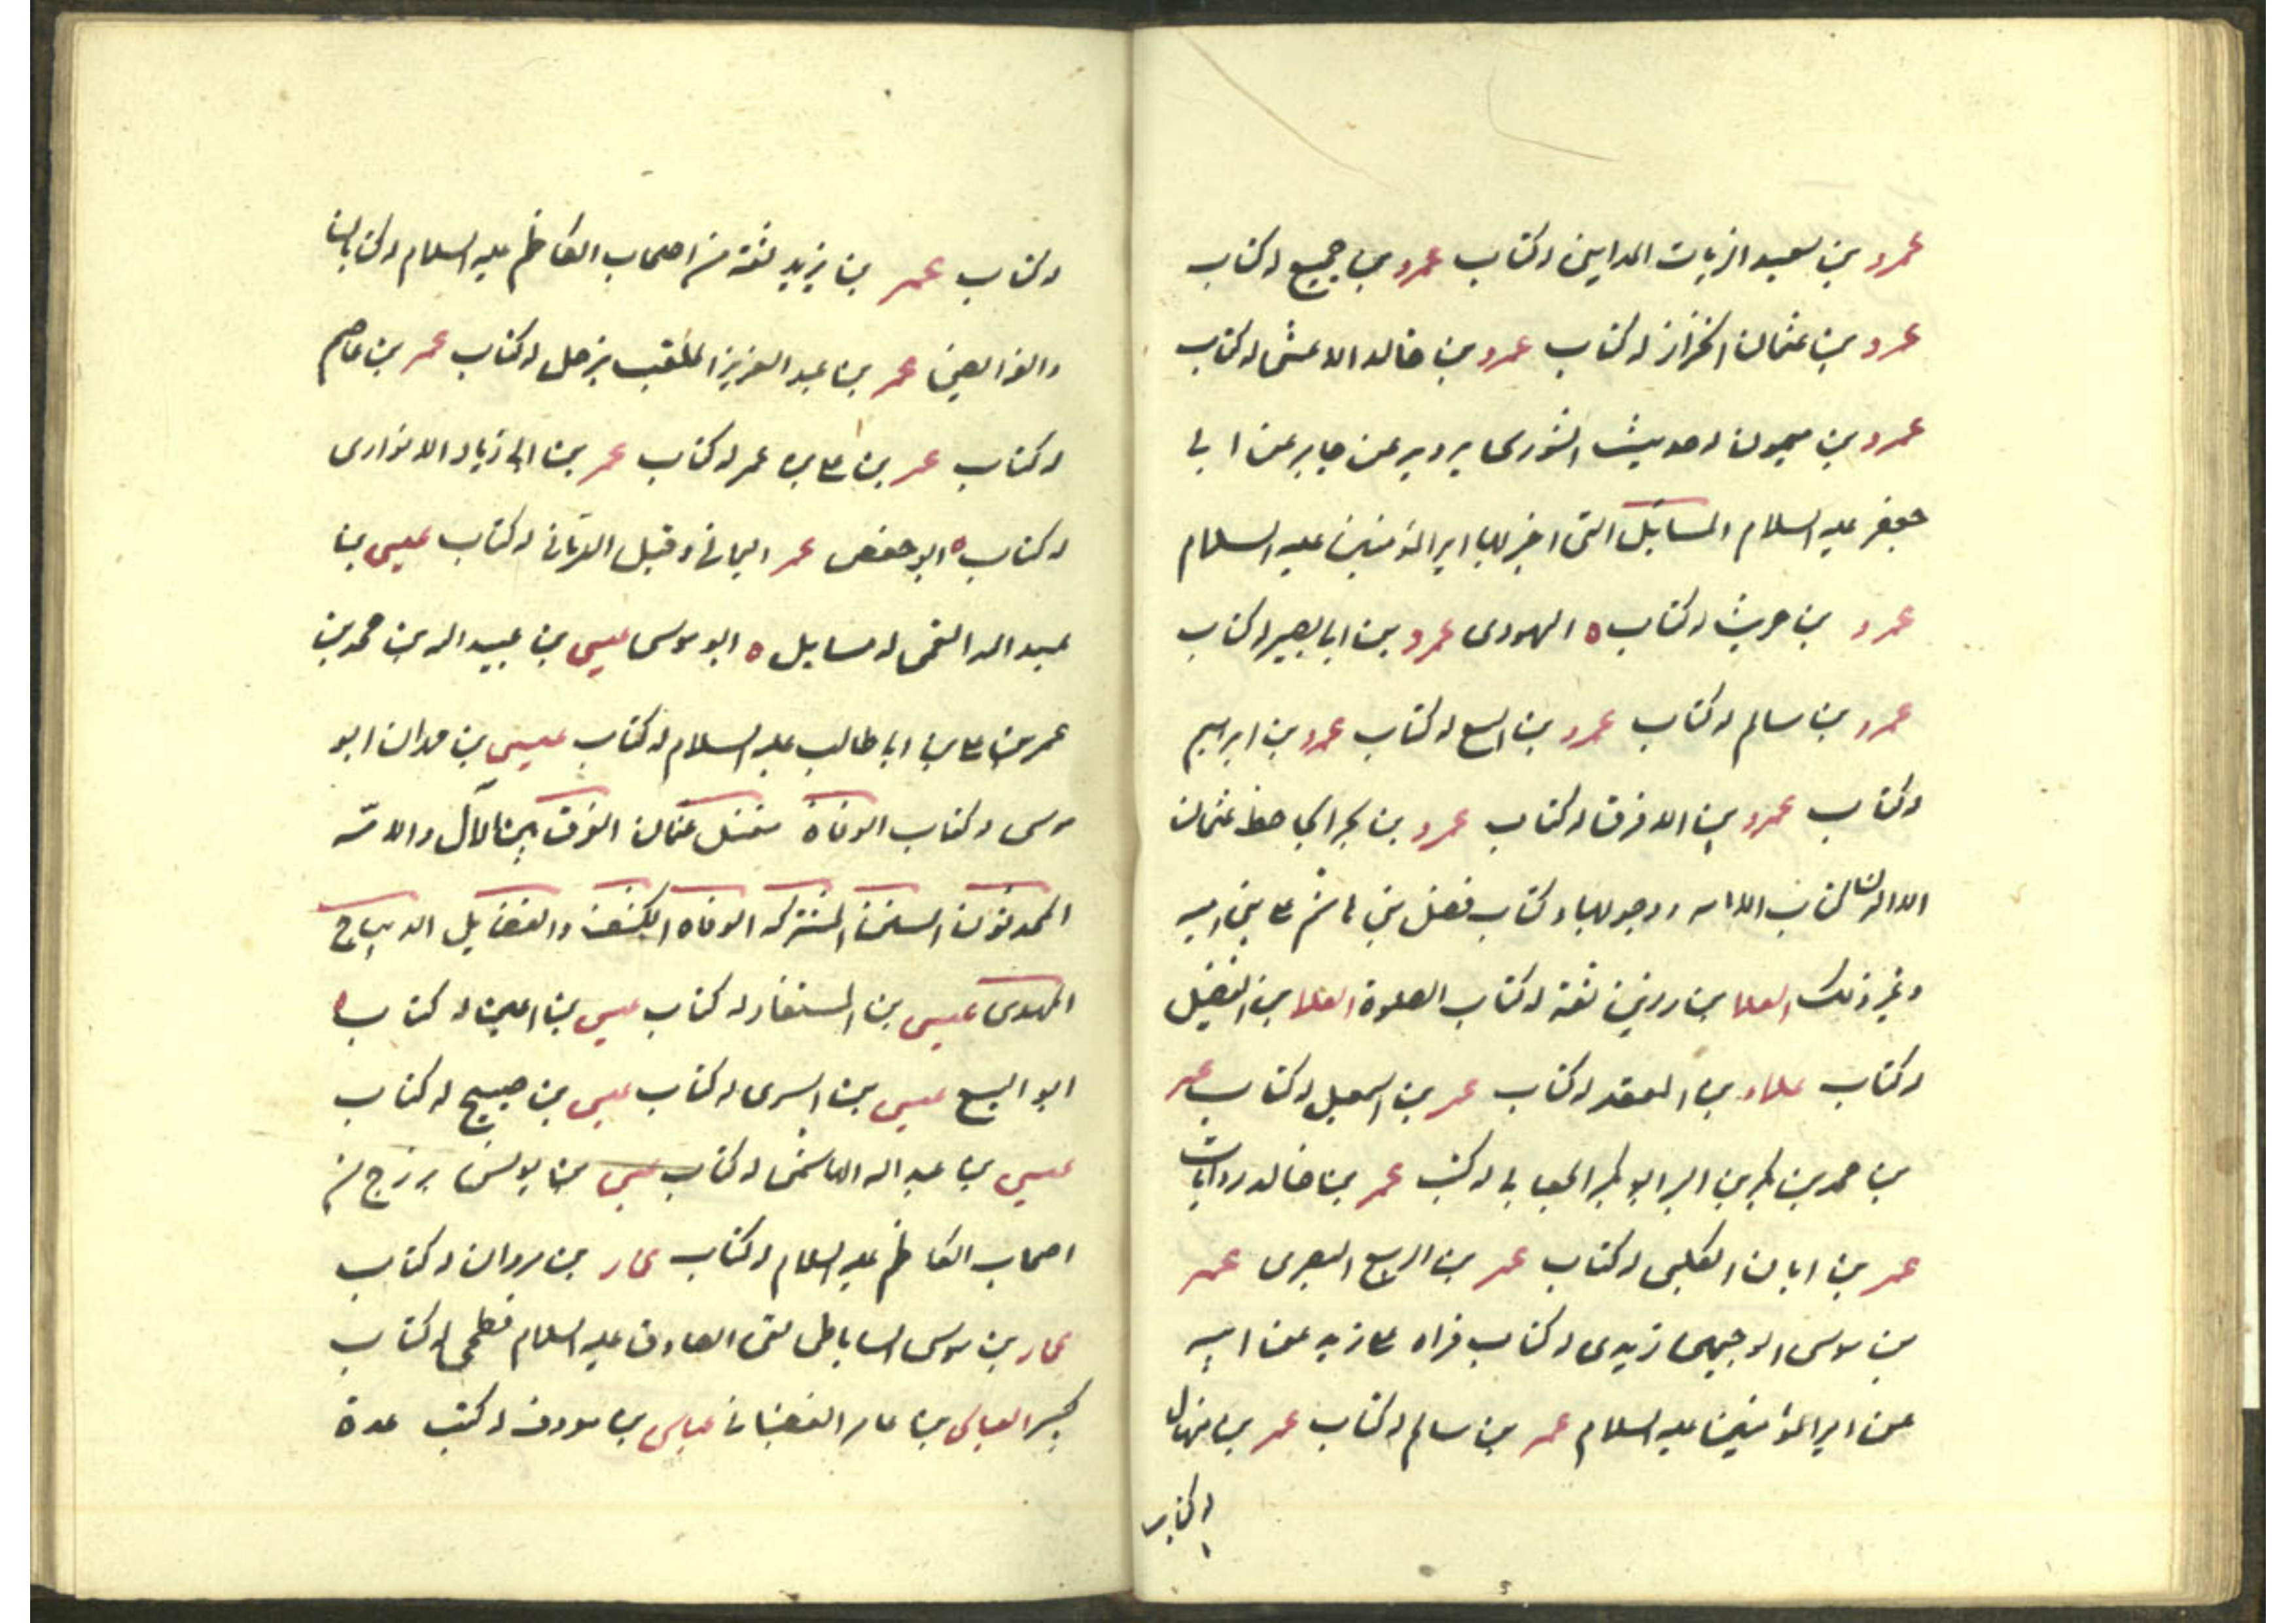 عمرو بن سعيد الزيات المداينى له كتاب عمرو بن جميع له كتاب
عمرو بن عثمان الخزاز له كتاب عمرو بن خالد الاعشى له كتاب
عمرو بن ميمون له حديث الشورى يرويه عن جابر عن ابى
جعفر عليه السلام المسايل التى اخبر بها امير المؤمنين عليه السلام
عمرو بن حريث له كتاب ه اليهودى عمرو بن ابى بصير له كتاب
عمرو بن سالم له كتاب عمرو بن اليسع له كتاب عمرو بن ابرهيم
له كتاب عمرو بن الافرق له كتاب عمرو بن بحر الجاحظ عثمان
كتاب الامامه ووجوبها وكتاب فضل بنى هاشم على بنى اميه
وغير ذلك العلا بن رزين ثقة له كتاب الصلوة العلا بن الفضيل
له كتاب علاء بن المقعد له كتاب عمر بن اسمعيل له كتاب عمر
بن محمد بن بكر بن البر ابو بكر الجعابى له كتب عمر بن خالد روايات
عمر بن ابان الكلبى له كتاب عمر بن الربيع البصرى عمر
بن موسى الوجيهى زيدى له كتاب قراه زيد عن ابيه
عن امير المؤمنين عليه السلام عمر بن سالم له كتاب عمر بن منهال
له كتاب
له كتاب عمر بن يزيد ثقة من اصحاب الكاظم عليه السلام له كتاب
والفرايض عمر بن عبد العزيز الملقب بزحل له كتاب عمر بن عاصم
له كتاب عمر بن على بن عمر له كتاب عمر بن ابى زياد الابزارى
له كتاب ه ابو حفص عمر اليمانى وقيل الرمانى له كتاب عيسى بن
عبد الله القمى له مسايل ه ابو موسى عيسى بن عبيد الله بن محمد بن
عمر بن على بن ابى طالب عليه السلام له كتاب عيسى بن مهران ابو
موسى له كتاب الوفاة مقتل عثمان الفرق بين الآل والامّه
المحدثون السنن المشتركه الوفاه الكشف والفضايل الديباج
المهدى عيسى بن المستفاد له كتاب عيسى بن اعين له كتاب ه
ابو اليسع عيسى بن السرى له كتاب عيسى بن صبيح له كتاب
عيسى بن عبد الله الهاشمى له كتاب عيسى بن يونس بزرج من
اصحاب الكاظم عليه السلام له كتاب عمار بن مروان له كتاب
عمار بن موسى الساباطى لقى الصادق عليه السلام فطحى له كتاب
كبير العباس بن عامر القصبانى عباس بن معروف له كتب عدة